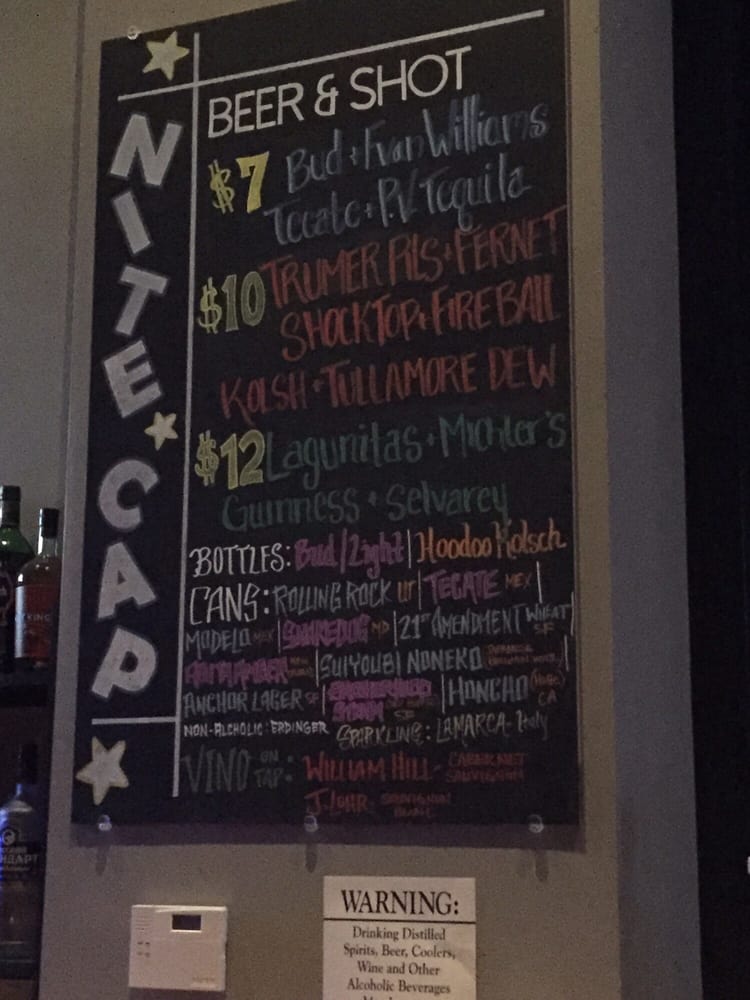 NITE CAP
BEER & SHOT
$7 Bud + Evan Williams
Tecate + P.V. Tequila
$10 TRUMER PILS + FERNET
SHOCK TOP + FIREBALL
KOLSH + TULLAMORE DEW
$12 Lagunitas + Michter's
Guinness + Selvarey
BOTTLES: Bud/Light | Hoodoo Kolsch
CANS: ROLLING ROCK | TECATE MEX |
MODELO MEX | 21st AMENDMENT WHEAT SF
| SUIYOUBI NONEKO |
ANCHOR LAGER SF | | HONCHO CA
NON-ALCHOLIC: ERDINGER SPARKLING: LAMARCA - Italy
VINO ON TAP: WILLIAM HILL - CABERNET SAUVIGNON
J. LOHR - SAUVIGNON
WARNING:
Drinking Distilled
Spirits, Beer, Coolers,
Wine and Other
Alcoholic Beverages